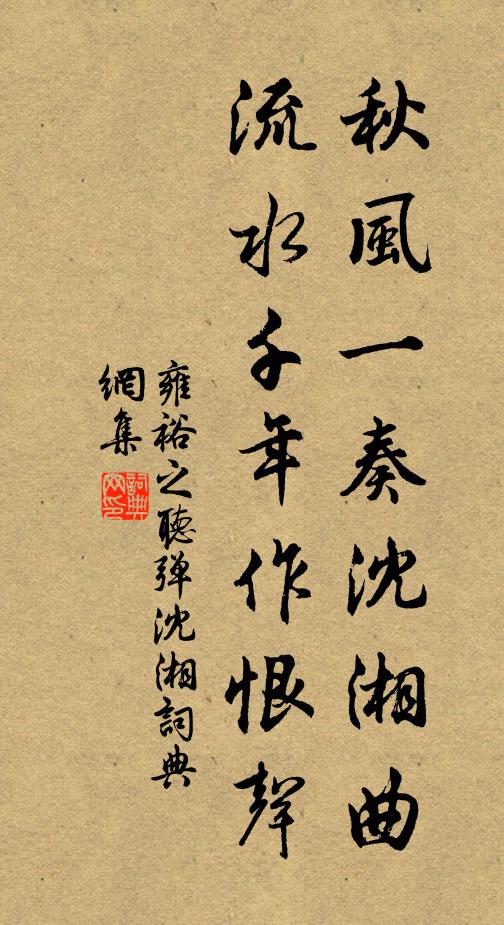 秋風一奏沈湘曲
流水千年作恨聲
雍裕之聽弹沈湘詞典
網集
詞典
网印